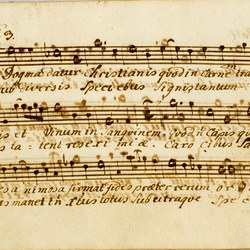 3
Dogma datur Christianis quod in Carnem
sub diversis Speciebus Signis tantum
et Vinum in Sanguinem quod n Capis
la tent res exi miæ Caro cibus
a nimosa firmat fides præter rerum or
manet in Xtus totus Sub utraque Spe